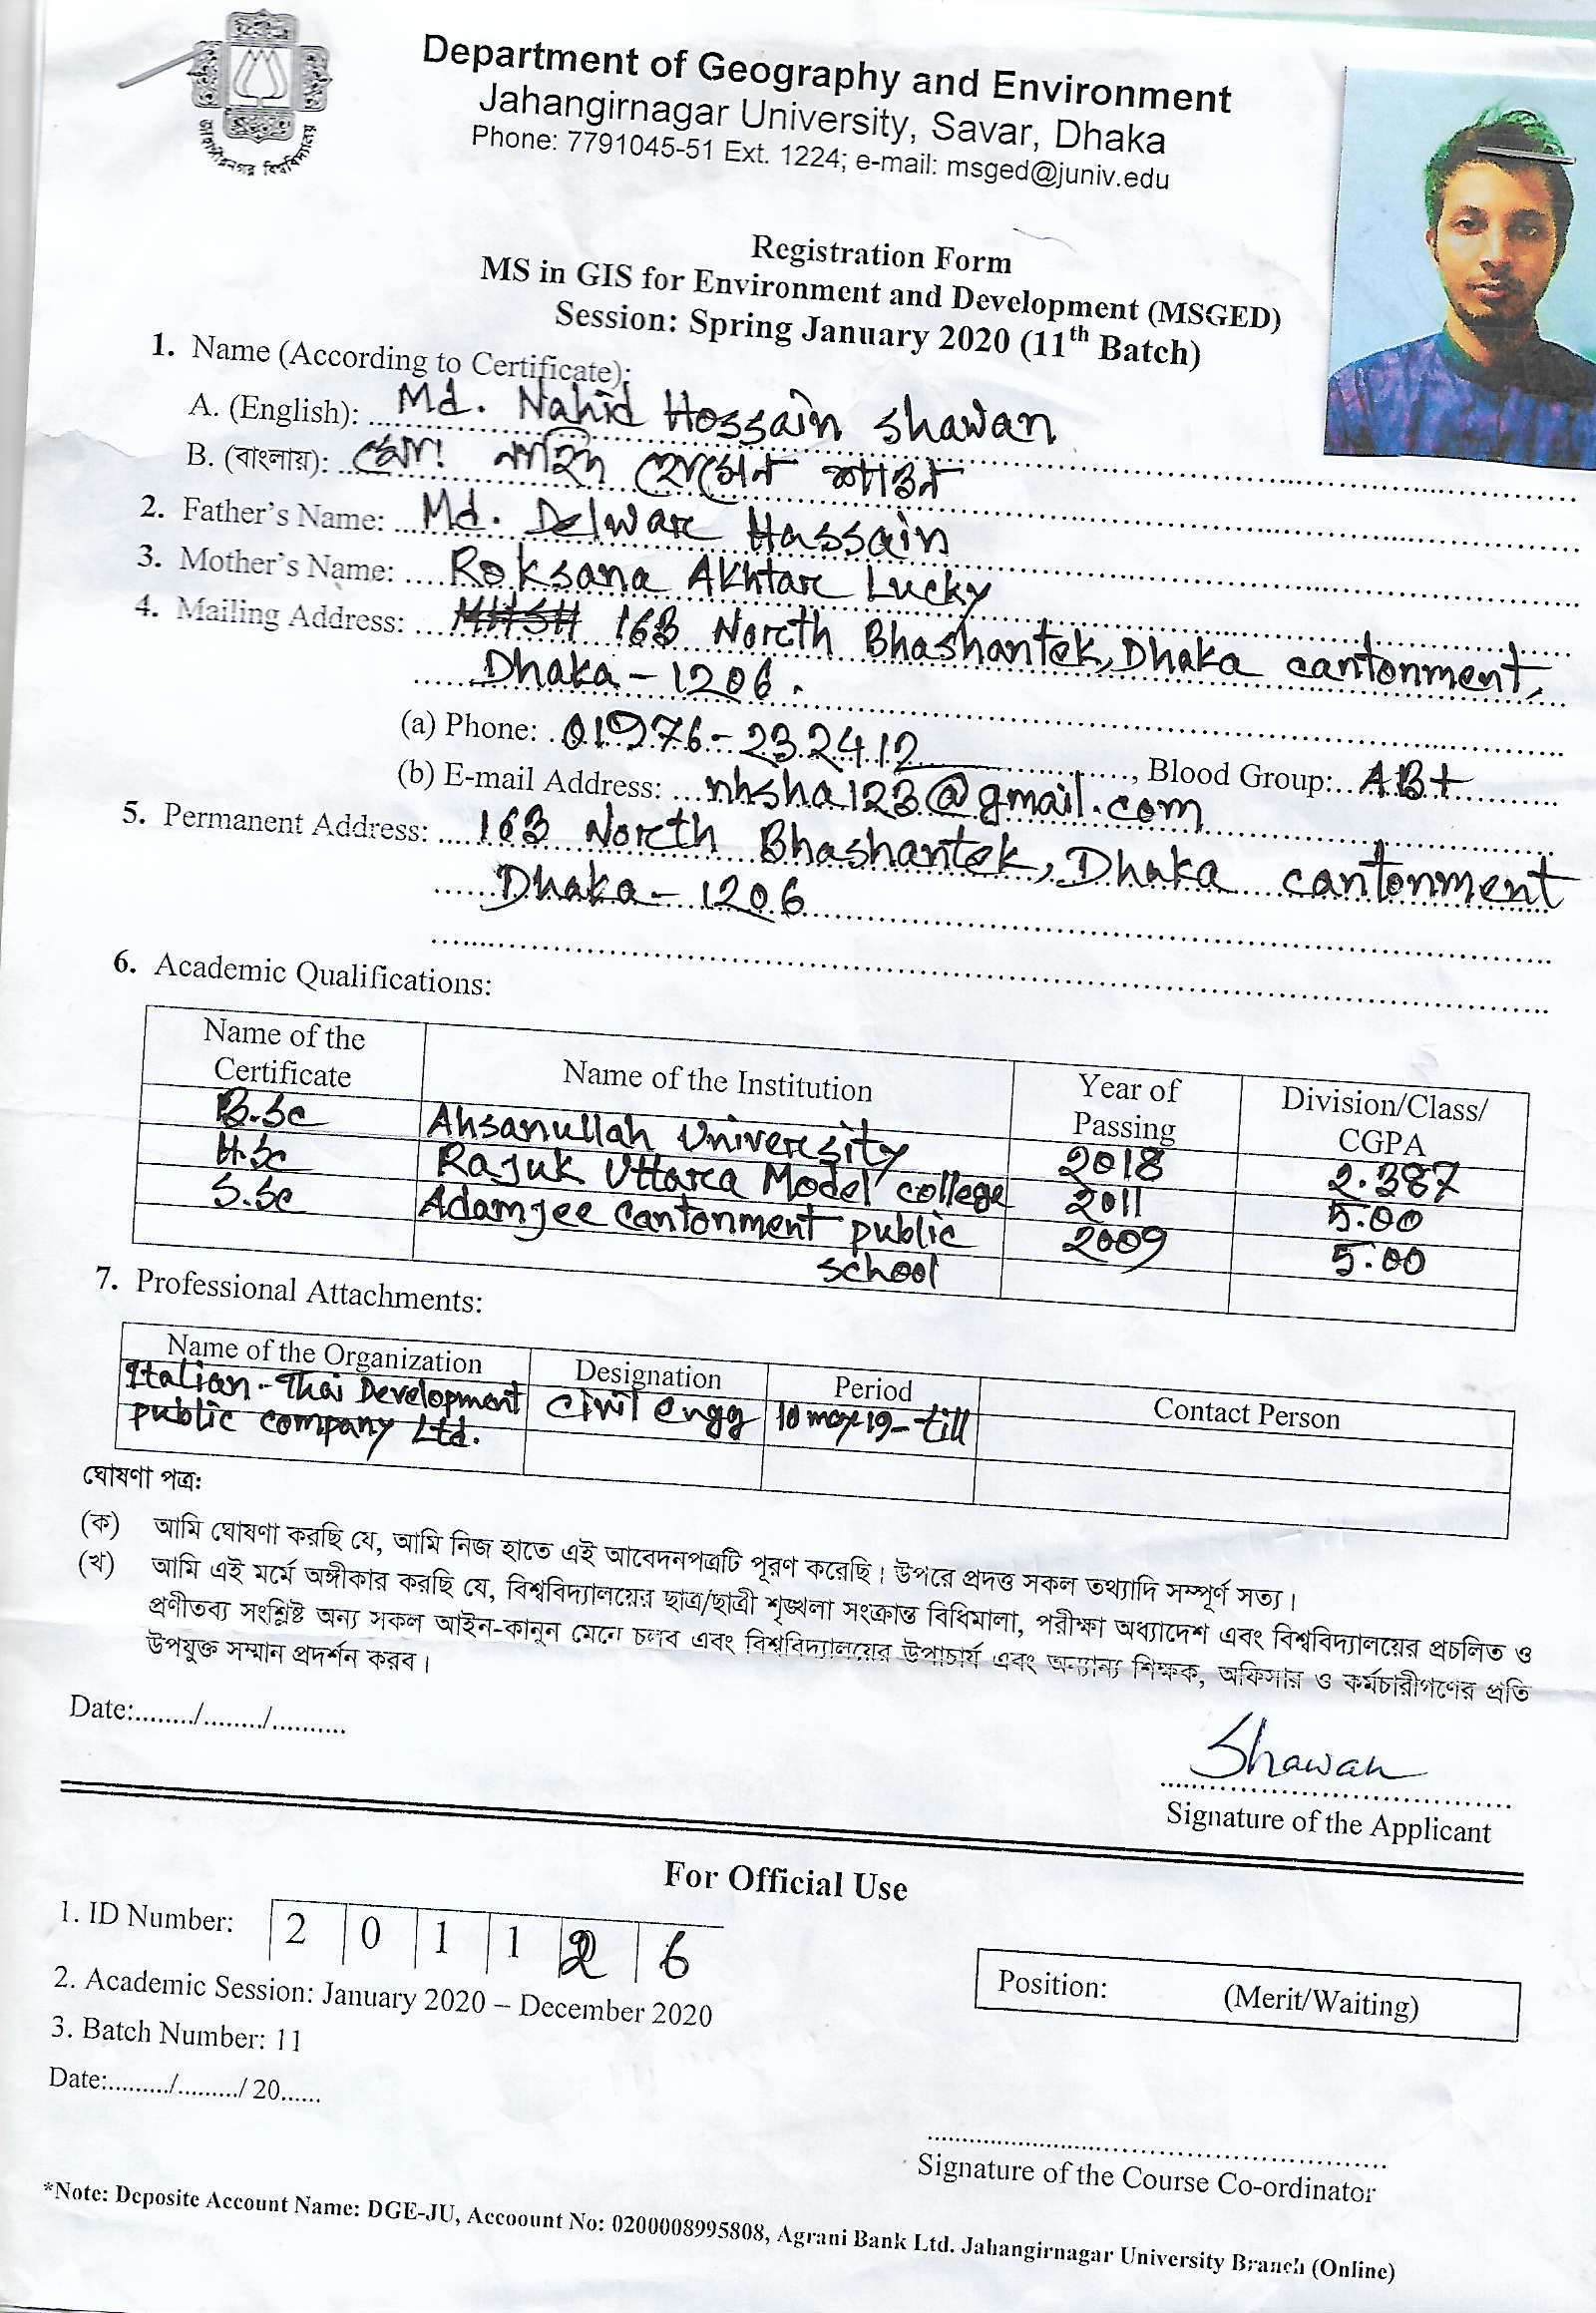 জাহাঙ্গীরনগর বিশ্ববিদ্যালয়
Department of Geography and Environment
Jahangirnagar University, Savar, Dhaka
Phone: 7791045-51 Ext. 1224; e-mail: msged@juniv.edu
Registration Form
MS in GIS for Environment and Development (MSGED)
Session: Spring January 2020 (11th Batch)
1. Name (According to Certificate):
A. (English): Md. Nahid Hossain Shawan
B. (বাংলায়): মোঃ নাহিদ হোসেন শাওন
2. Father's Name: Md. Delwar Hossain
3. Mother's Name: Roksana Akhtar Lucky
4. Mailing Address: 163 North Bhashantek, Dhaka cantonment,
Dhaka - 1206.
(a) Phone: 01976-232412, Blood Group: AB+
(b) E-mail Address: nhsha123@gmail.com
5. Permanent Address: 163 North Bhashantek, Dhaka cantonment
Dhaka - 1206
6. Academic Qualifications:
Name of the Certificate Name of the Institution Year of Passing Division/Class/CGPA
B.Sc Ahsanullah University 2018 2.387
H.Sc Rajuk Uttara Model college 2011 5.00
S.Sc Adamjee Cantonment public school 2009 5.00
7. Professional Attachments:
Name of the Organization Designation Period Contact Person
Italian-Thai Development public company Ltd. Civil engg 10 may 19 - till
ঘোষণা পত্র:
(ক) আমি ঘোষণা করছি যে, আমি নিজ হাতে এই আবেদনপত্রটি পূরণ করেছি। উপরে প্রদত্ত সকল তথ্যাদি সম্পূর্ণ সত্য।
(খ) আমি এই মর্মে অঙ্গীকার করছি যে, বিশ্ববিদ্যালয়ের ছাত্র/ছাত্রী শৃঙ্খলা সংক্রান্ত বিধিমালা, পরীক্ষা অধ্যাদেশ এবং বিশ্ববিদ্যালয়ের প্রচলিত ও
প্রণীতব্য সংশ্লিষ্ট অন্য সকল আইন-কানুন মেনে চলব এবং বিশ্ববিদ্যালয়ের উপাচার্য এবং অন্যান্য শিক্ষক, অফিসার ও কর্মচারীগণের প্রতি
উপযুক্ত সম্মান প্রদর্শন করব।
Date:......../......../..........
Shawan
Signature of the Applicant
For Official Use
1. ID Number: 2 0 1 1 2 6
2. Academic Session: January 2020 – December 2020
Position: (Merit/Waiting)
3. Batch Number: 11
Date:........./........./ 20......
Signature of the Course Co-ordinator
*Note: Deposite Account Name: DGE-JU, Accoount No: 0200008995808, Agrani Bank Ltd. Jahangirnagar University Branch (Online)